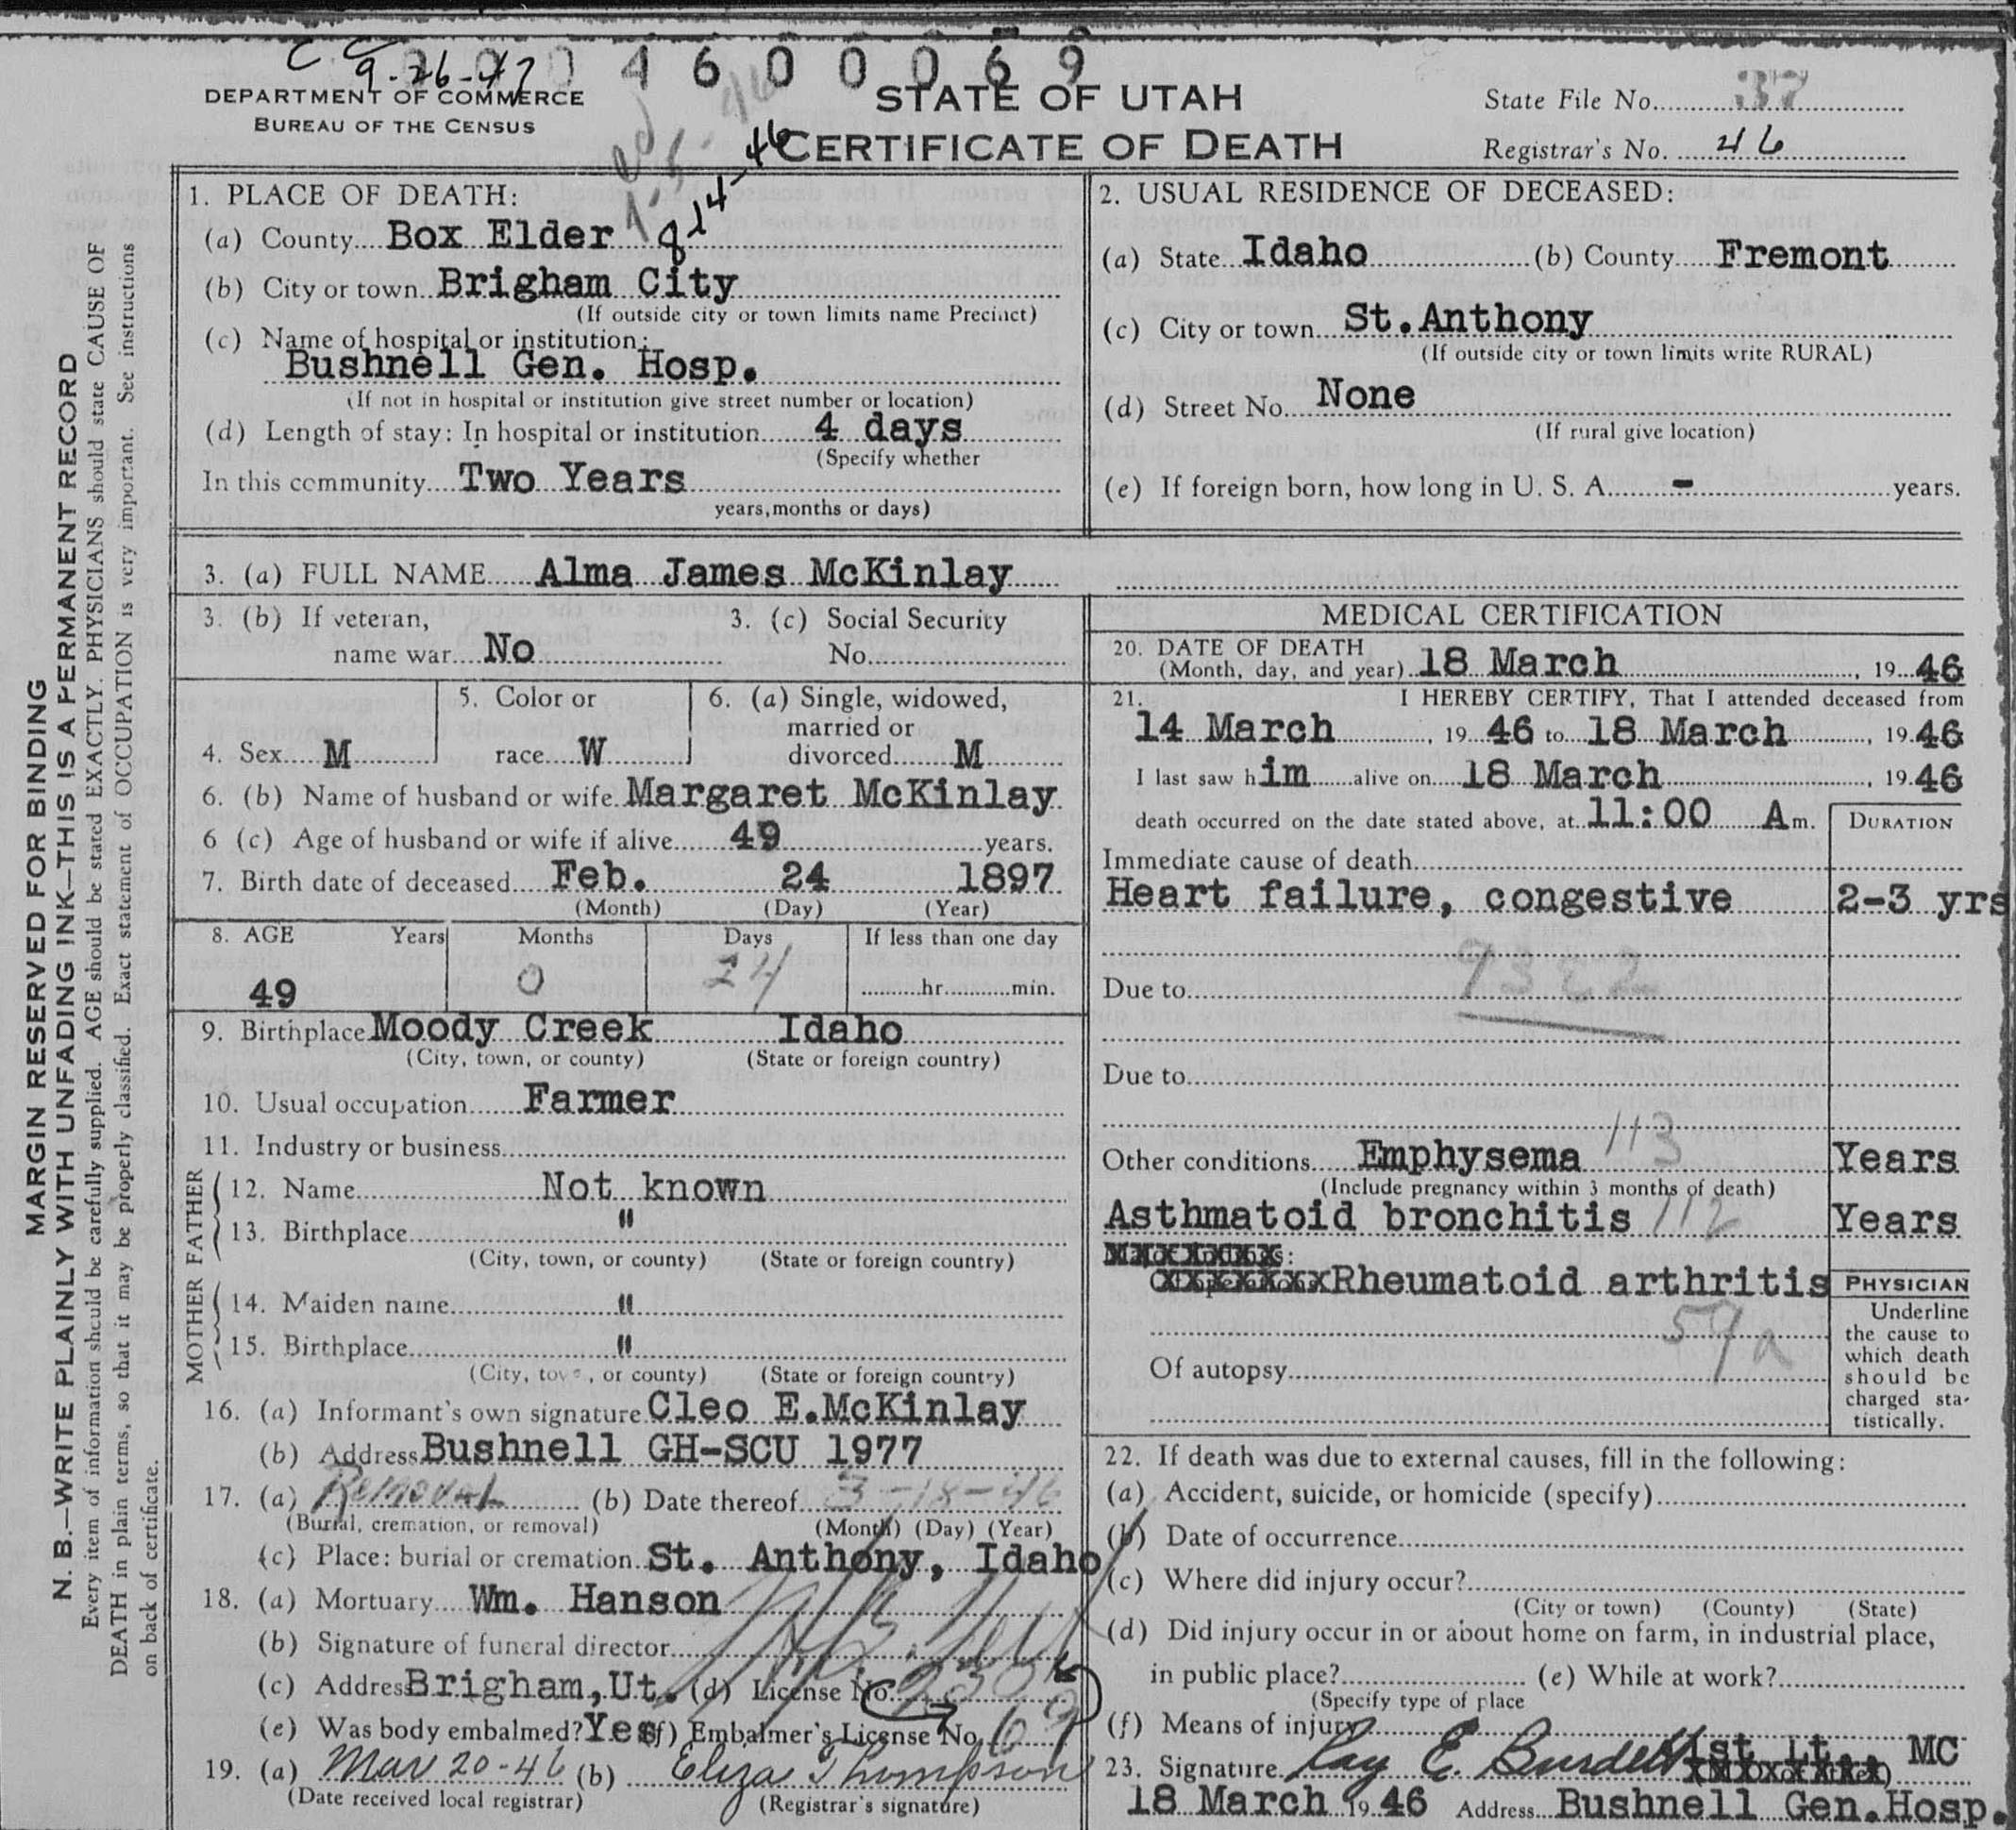 C C
9-26-47
4 6 0 0 0 6 9
DEPARTMENT OF COMMERCE
BUREAU OF THE CENSUS
STATE OF UTAH
CERTIFICATE OF DEATH
State File No. 37
Registrar's No. 46
MARGIN RESERVED FOR BINDING
N. B.—WRITE PLAINLY WITH UNFADING INK—THIS IS A PERMANENT RECORD
Every item of information should be carefully supplied. AGE should be stated EXACTLY. PHYSICIANS should state CAUSE OF
DEATH in plain terms, so that it may be properly classified. Exact statement of OCCUPATION is very important. See instructions
on back of certificate.
1. PLACE OF DEATH:
(a) County Box Elder
(b) City or town Brigham City
(If outside city or town limits name Precinct)
(c) Name of hospital or institution:
Bushnell Gen. Hosp.
(If not in hospital or institution give street number or location)
(d) Length of stay: In hospital or institution 4 days
(Specify whether
In this community Two Years
years, months or days)
2. USUAL RESIDENCE OF DECEASED:
(a) State Idaho (b) County Fremont
(c) City or town St. Anthony
(If outside city or town limits write RURAL)
(d) Street No. None
(If rural give location)
(e) If foreign born, how long in U. S. A. - years.
3. (a) FULL NAME Alma James McKinlay
3. (b) If veteran,
name war No
3. (c) Social Security
No.
4. Sex M
5. Color or
race W
6. (a) Single, widowed,
married or
divorced M
6. (b) Name of husband or wife Margaret McKinlay
6 (c) Age of husband or wife if alive 49 years.
7. Birth date of deceased Feb. 24 1897
(Month) (Day) (Year)
8. AGE Years Months Days If less than one day
49 0 24 hr. min.
9. Birthplace Moody Creek Idaho
(City, town, or county) (State or foreign country)
10. Usual occupation Farmer
11. Industry or business
FATHER
12. Name Not known
13. Birthplace "
(City, town, or county) (State or foreign country)
MOTHER
14. Maiden name "
15. Birthplace "
(City, town, or county) (State or foreign country)
16. (a) Informant's own signature Cleo E.McKinlay
(b) Address Bushnell GH-SCU 1977
17. (a) Removal (b) Date thereof 3-18-46
(Burial, cremation, or removal) (Month) (Day) (Year)
(c) Place: burial or cremation St. Anthony, Idaho
18. (a) Mortuary Wm. Hanson
(b) Signature of funeral director
(c) Address Brigham,Ut. (d) License No.
(e) Was body embalmed? Yes (f) Embalmer's License No.
19. (a) Mar 20-46 (b) Eliza Thompson
(Date received local registrar) (Registrar's signature)
MEDICAL CERTIFICATION
20. DATE OF DEATH
(Month, day, and year) 18 March, 19 46
21. I HEREBY CERTIFY, That I attended deceased from
14 March, 19 46 to 18 March, 19 46
I last saw him alive on 18 March, 19 46
death occurred on the date stated above, at 11:00 A m.
DURATION
Immediate cause of death
Heart failure, congestive 2-3 yrs
Due to
Due to
Other conditions Emphysema 113 Years
(Include pregnancy within 3 months of death)
Asthmatoid bronchitis 112 Years
Rheumatoid arthritis
59a
Of autopsy
PHYSICIAN
Underline
the cause to
which death
should be
charged sta-
tistically.
22. If death was due to external causes, fill in the following:
(a) Accident, suicide, or homicide (specify)
(b) Date of occurrence
(c) Where did injury occur?
(City or town) (County) (State)
(d) Did injury occur in or about home on farm, in industrial place,
in public place? (e) While at work?
(Specify type of place
(f) Means of injury
23. Signature Ray E. Burdett 1st Lt., MC
18 March 19 46 Address Bushnell Gen.Hosp.